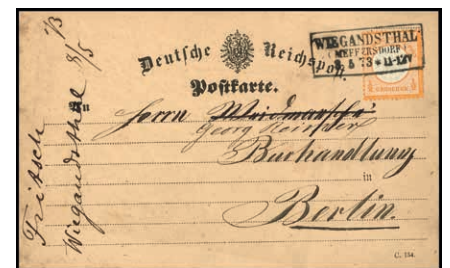 Deutsche Reichspost.
Postkarte.
WIEGANDSTHAL
(MEFFERSDORF)
8 5 73 * 11-12V
An
Herrn Weidmann'sche
Georg Reimer
Buchhandlung
in
Berlin.
C. 154.
Fritsch
Wiegandsthal 8/5